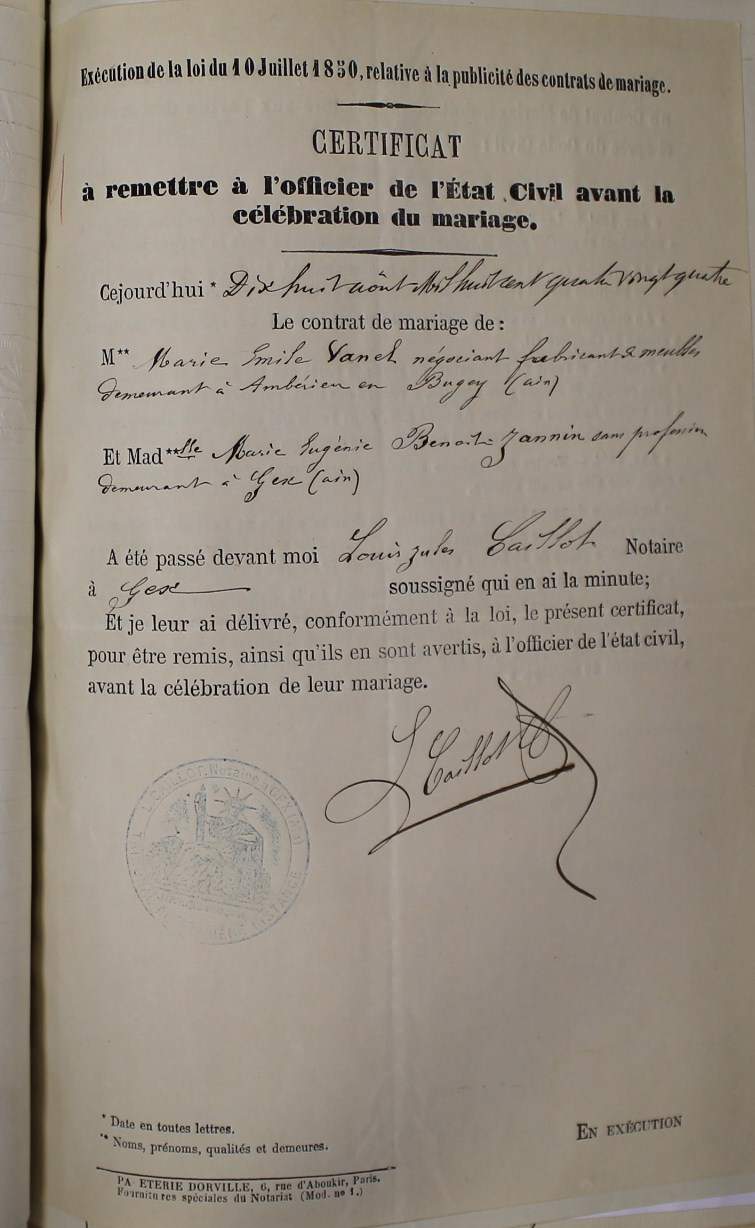 Exécution de la loi du 10 Juillet 1850, relative à la publicité des contrats de mariage.
CERTIFICAT
à remettre à l'officier de l'État Civil avant la
célébration du mariage.
Cejourd'hui * Dix huit août Mil huit cent quatre vingt quatre
Le contrat de mariage de :
M** Marie Emile Vanel négociant fabricant de meubles
demeurant à Ambérieu en Bugey (ain)
Et Mad**lle Marie Eugénie Benoit-Jannin sans profession
demeurant à Gex (ain)
A été passé devant moi Louis Jules Caillot Notaire
à Gex soussigné qui en ai la minute;
Et je leur ai délivré, conformément à la loi, le présent certificat,
pour être remis, ainsi qu'ils en sont avertis, à l'officier de l'état civil,
avant la célébration de leur mariage.
L Caillot
L. CAILLOT, Notaire
* Date en toutes lettres.
** Noms, prénoms, qualités et demeures.
EN EXÉCUTION
PA ETERIE DORVILLE, 6, rue d'Aboukir, Paris.
Fournitures spéciales du Notariat (Mod. nº 1.)